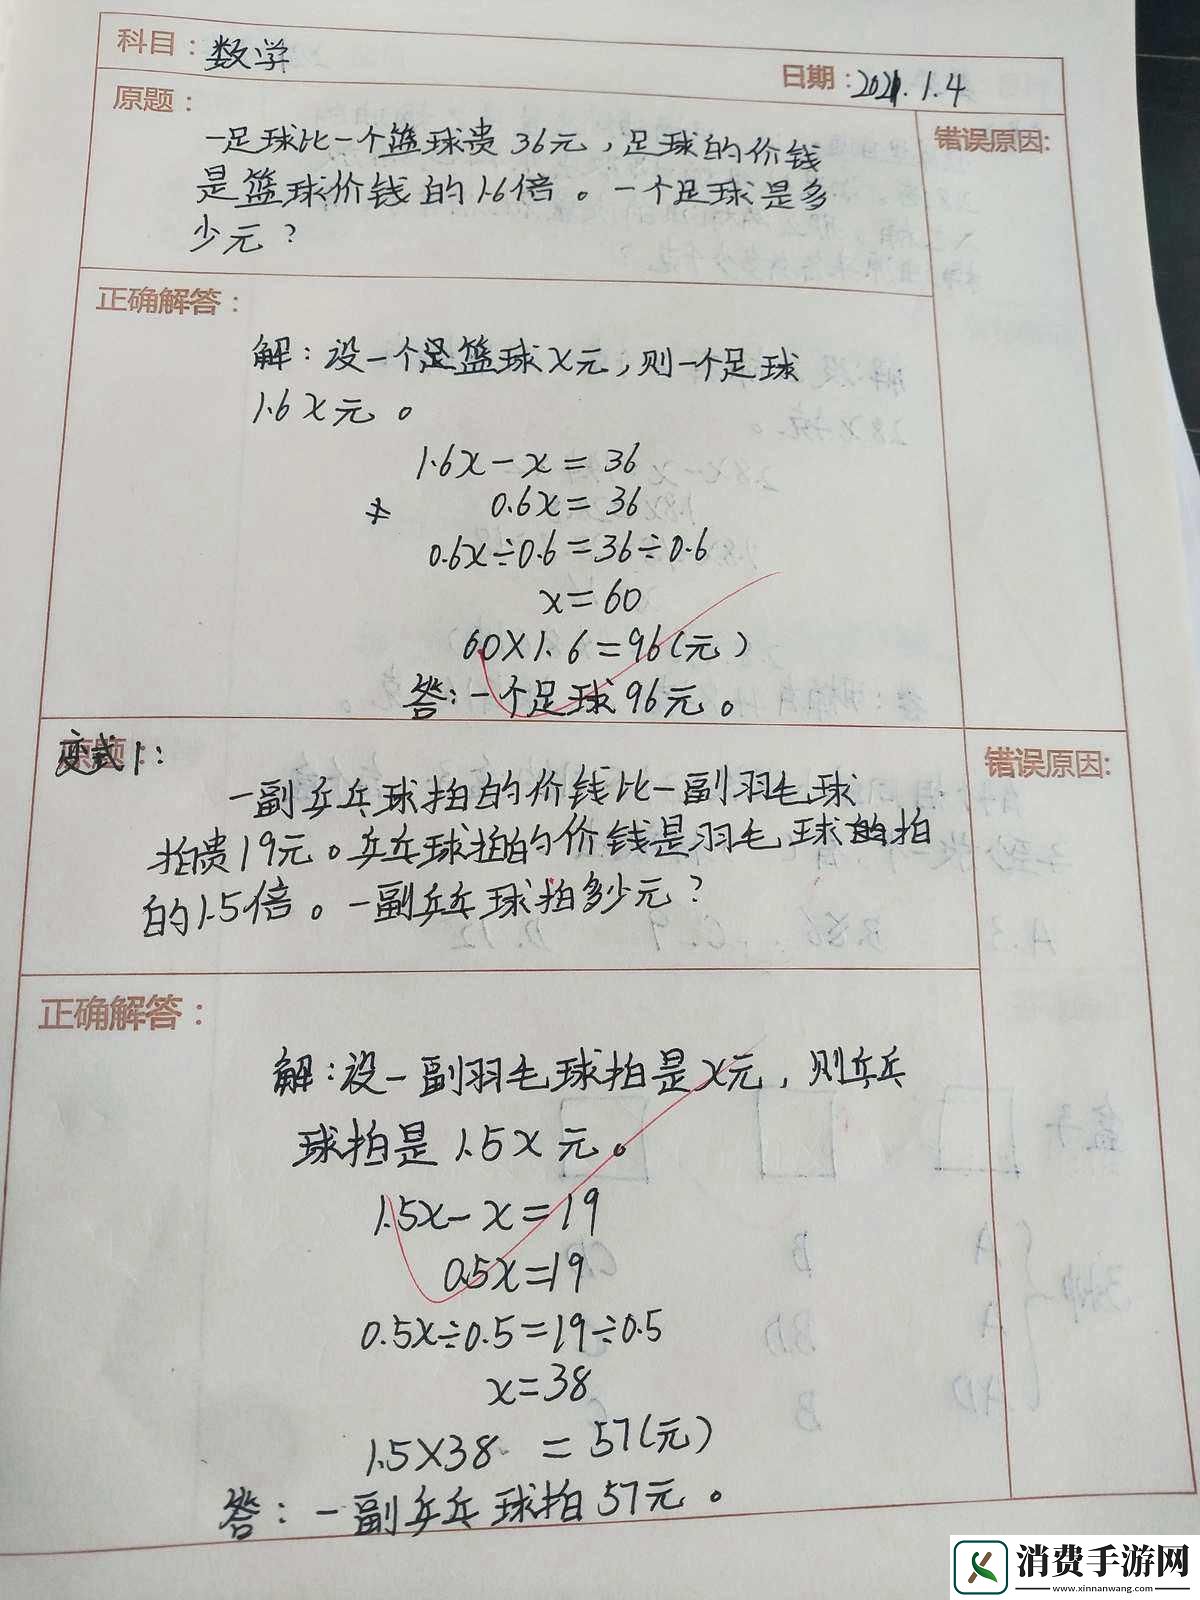 科目：数学
日期：2021.1.4
原题：
一足球比一个篮球贵36元，足球的价钱
是篮球价钱的1.6倍。一个足球是多
少元？
错误原因:
正确解答：
解：设一个篮球x元，则一个足球
1.6x元。
1.6x－x＝36
0.6x＝36
0.6x÷0.6＝36÷0.6
x＝60
60×1.6＝96(元)
答：一个足球96元。
变式1：
一副乒乓球拍的价钱比一副羽毛球
拍贵19元。乒乓球拍的价钱是羽毛球拍
的1.5倍。一副乒乓球拍多少元？
错误原因:
正确解答：
解：设一副羽毛球拍是x元，则乒乓
球拍是1.5x元。
1.5x－x＝19
0.5x＝19
0.5x÷0.5＝19÷0.5
x＝38
1.5×38＝57(元)
答：一副乒乓球拍57元。
消费手游网
www.xinnanwang.com